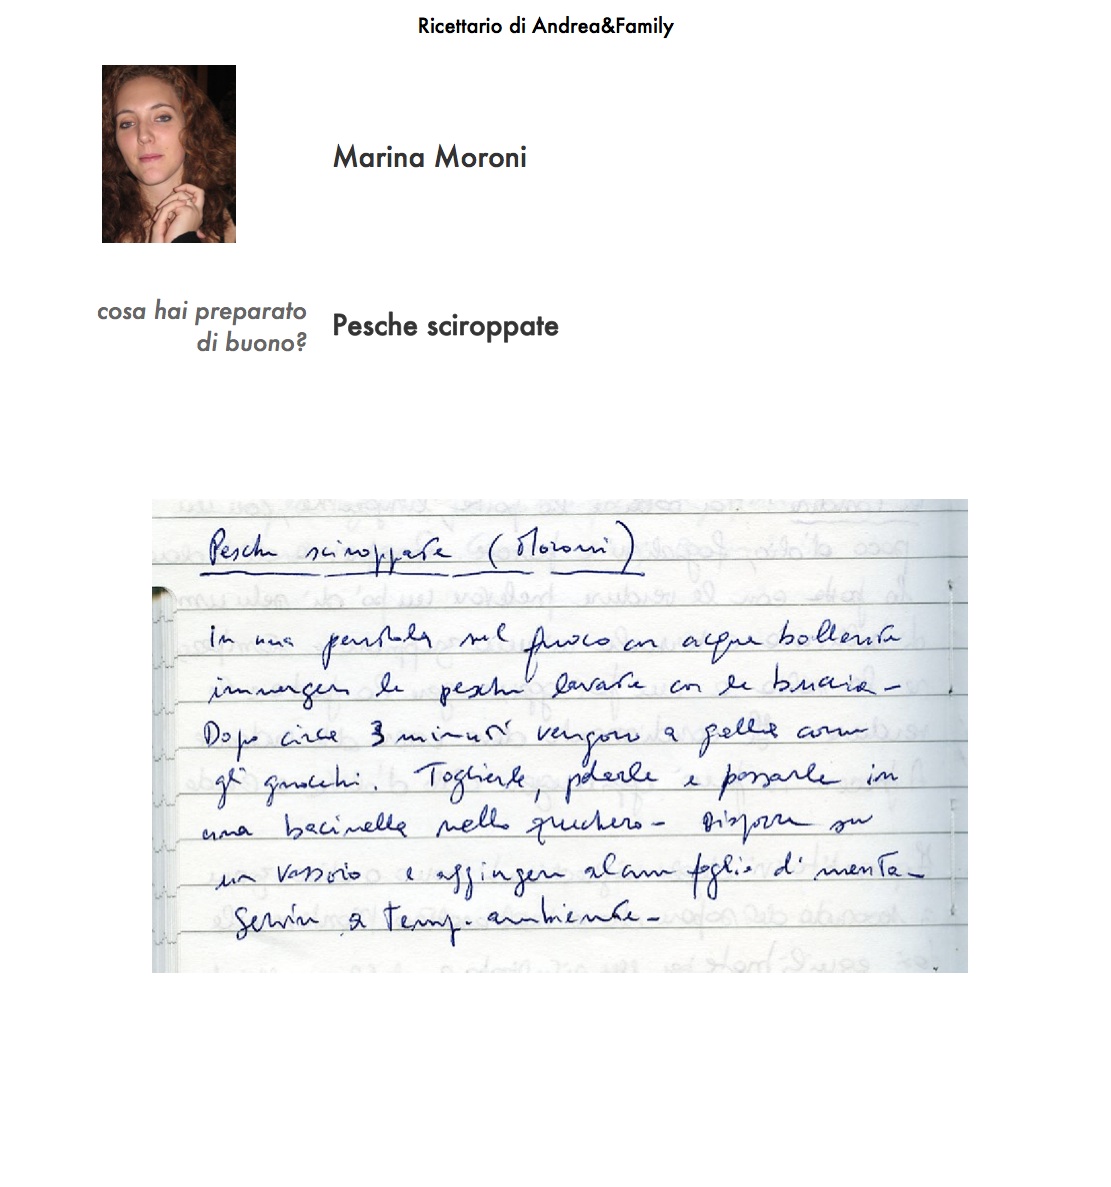 Ricettario di Andrea&Family
Marina Moroni
cosa hai preparato
di buono?
Pesche sciroppate
Pesche sciroppate (Moroni)
in una pentola sul fuoco con acqua bollente
immergere le pesche lavate con la buccia -
Dopo circa 3 minuti vengono a galla come
gli gnocchi. Toglierle, pelarle e passarle in
una bacinella nello zucchero - Disporre su
un vassoio e aggiungere alcune foglie di menta -
Servire a temp. ambiente -